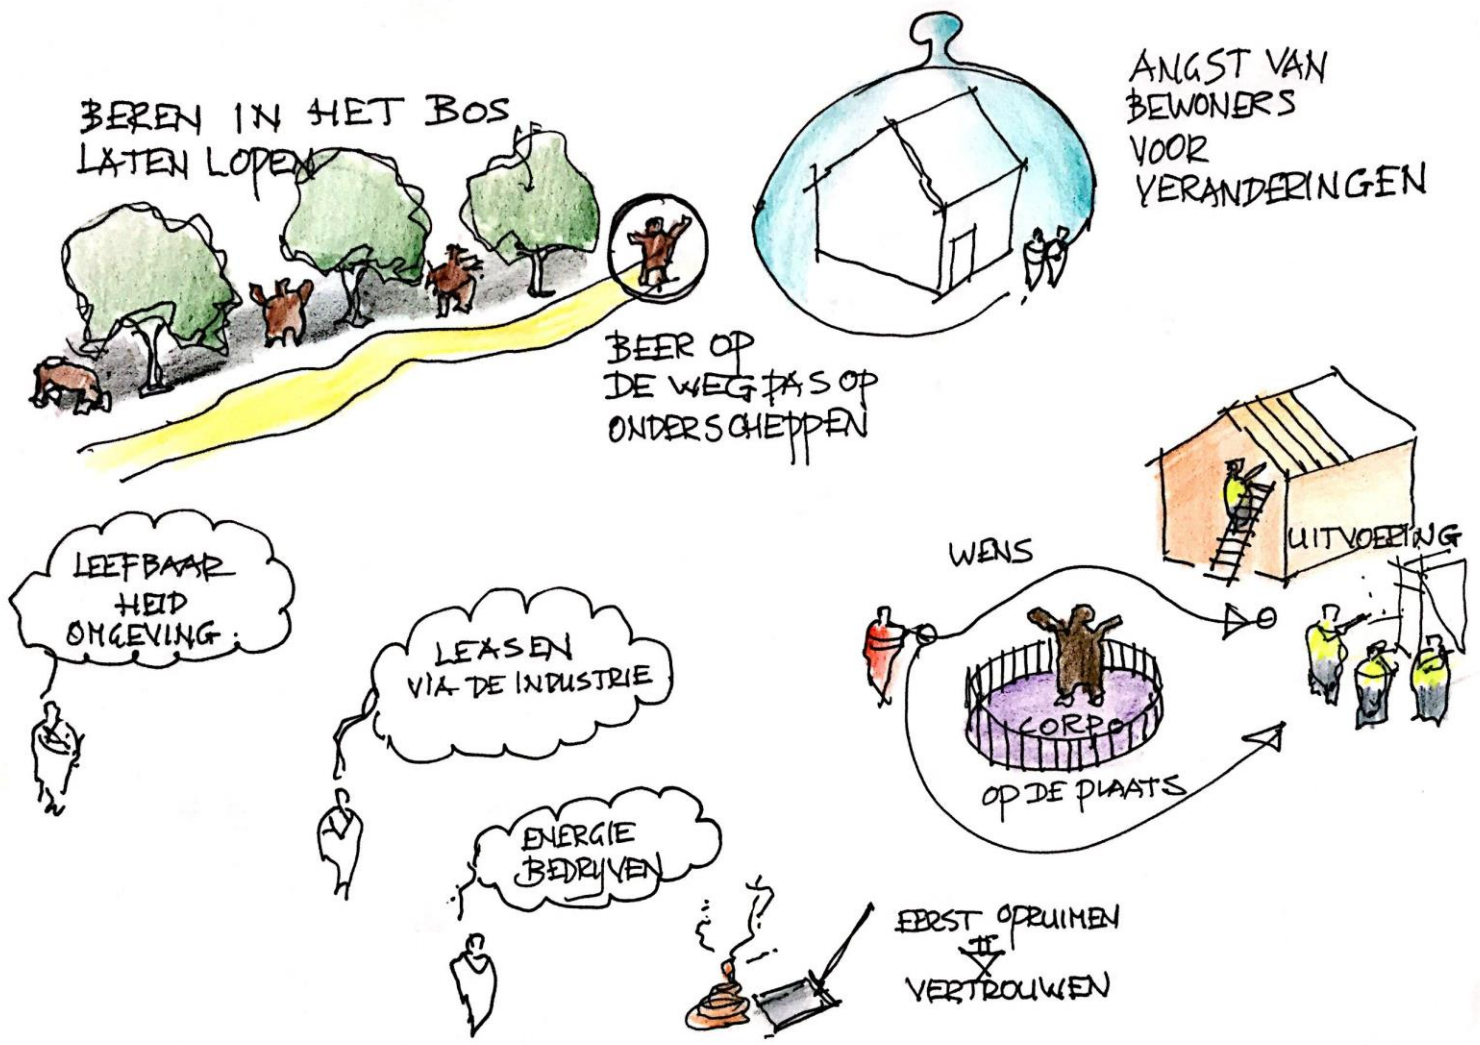 BEREN IN HET BOS
LATEN LOPEN
ANGST VAN
BEWONERS
VOOR
VERANDERINGEN
BEER OP
DE WEG PAS OP
ONDERSCHEPPEN
LEEFBAAR
HEID
OMGEVING
LEASEN
VIA DE INDUSTRIE
ENERGIE
BEDRIJVEN
WENS
UITVOERING
CORPO
OP DE PLAATS
EERST OPRUIMEN
VERTROUWEN